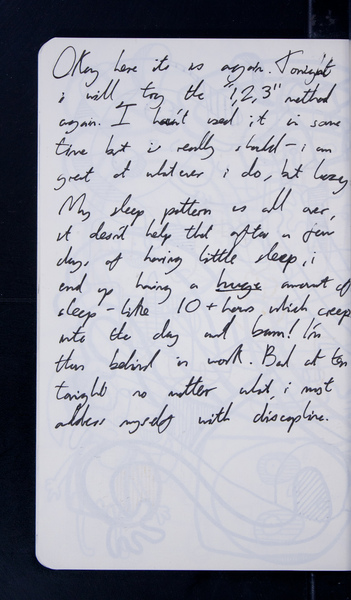 Okay here it is again. Tonight
i will try the "1,2,3" method
again. I haven't used it in some
time but i really should - i am
great at whatever i do, but lazy
My sleep pattern is all over,
it doesn't help that after a few
days of having little sleep, i
end up having a huge amount of
sleep - like 10+ hours which creep
into the day and bam! I'm
then behind in work. Bed at ten
tonight no matter what, i must
address myself with discipline.